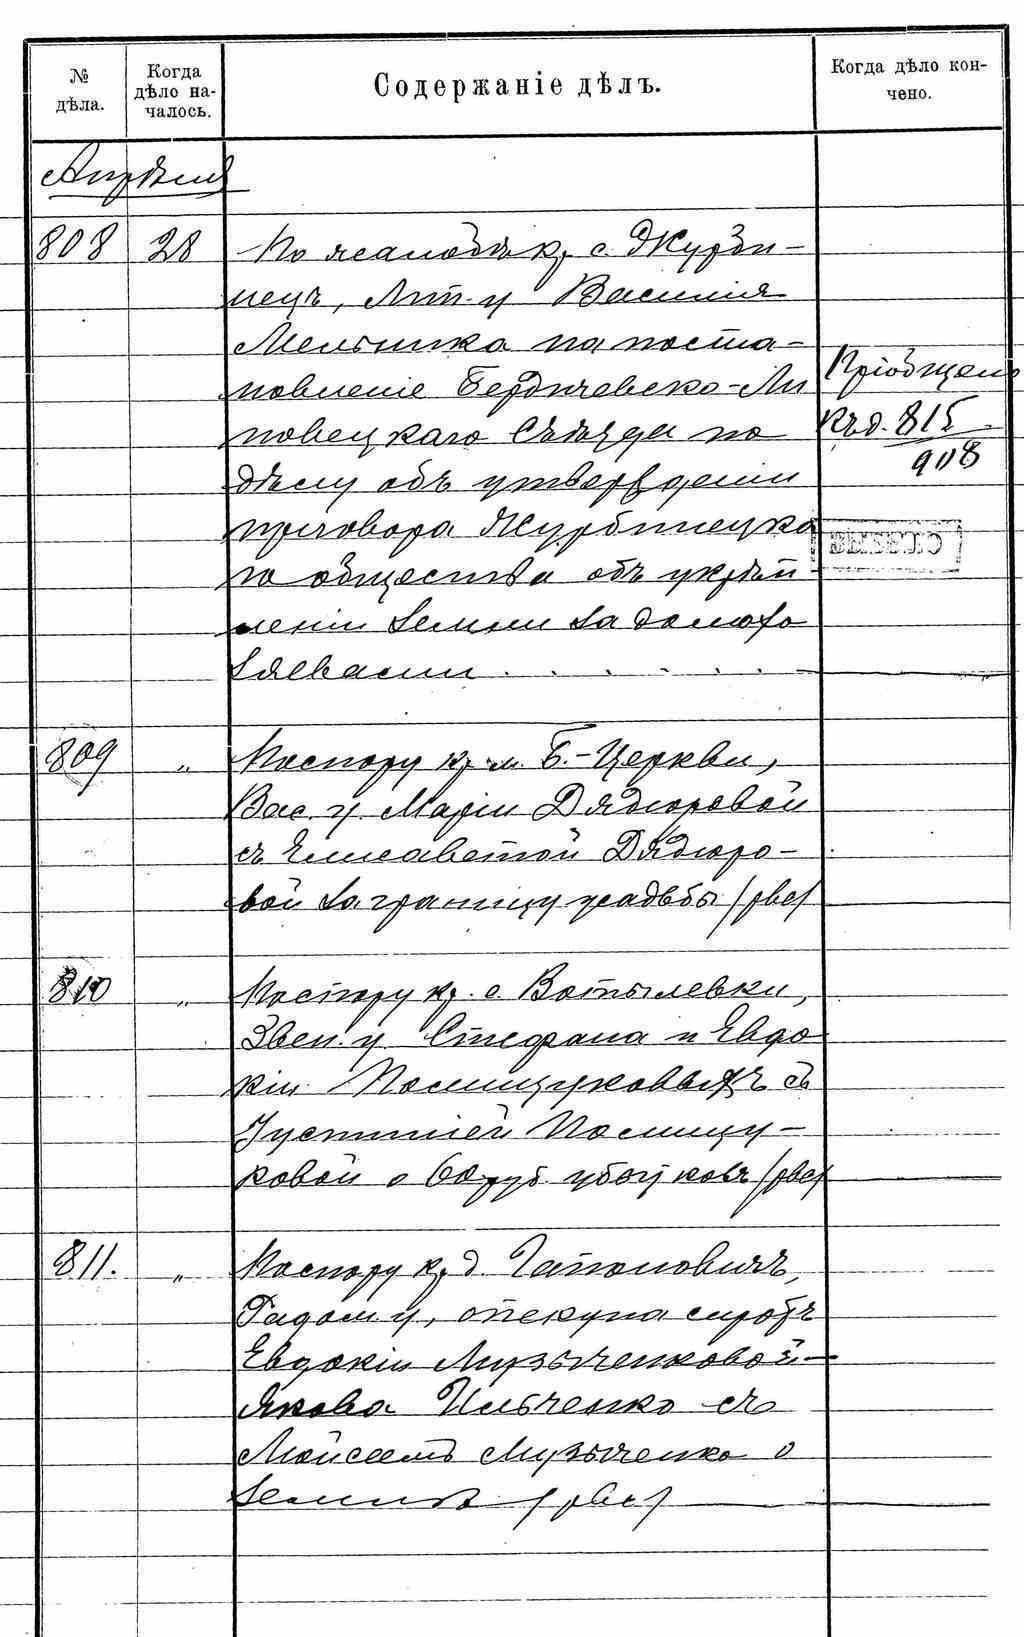 № дѣла.
Когда дѣло на-
чалось.
Содержаніе дѣлъ.
Когда дѣло кон-
чено.
Апрѣля
808 28 По жалобѣ кр. с. Журби-
нецъ, Лип. у Василія
Мельника на поста-
новленіе Бердичевско-Ли
повецкаго Съѣзда по
дѣлу объ утвержденіи
приговора Журбинецка
го общества объ укрѣп-
леніи земли за домохо
зяевами . . . . . .
Пріобщено
къ д. 815
908
809 „ По спору кр. м. Б.-Церкви,
Вас. у. Маріи Дядюровой
съ Елисаветой Дядюро-
вой за границу усадьбы
810 „ По спору кр. с. Вотылевки,
Звен. у Стефана и Евдо
кіи Полищуковыхъ съ
Іустиніей Полищу-
ковой о 60 руб. убытковъ
811. „ По спору кр. д. Гапоновичъ,
Радом. у, опекуна сиротъ
Евдокіи Музыченковой-
Якова Ильченко съ
Моисеемъ Музыченко о
землѣ